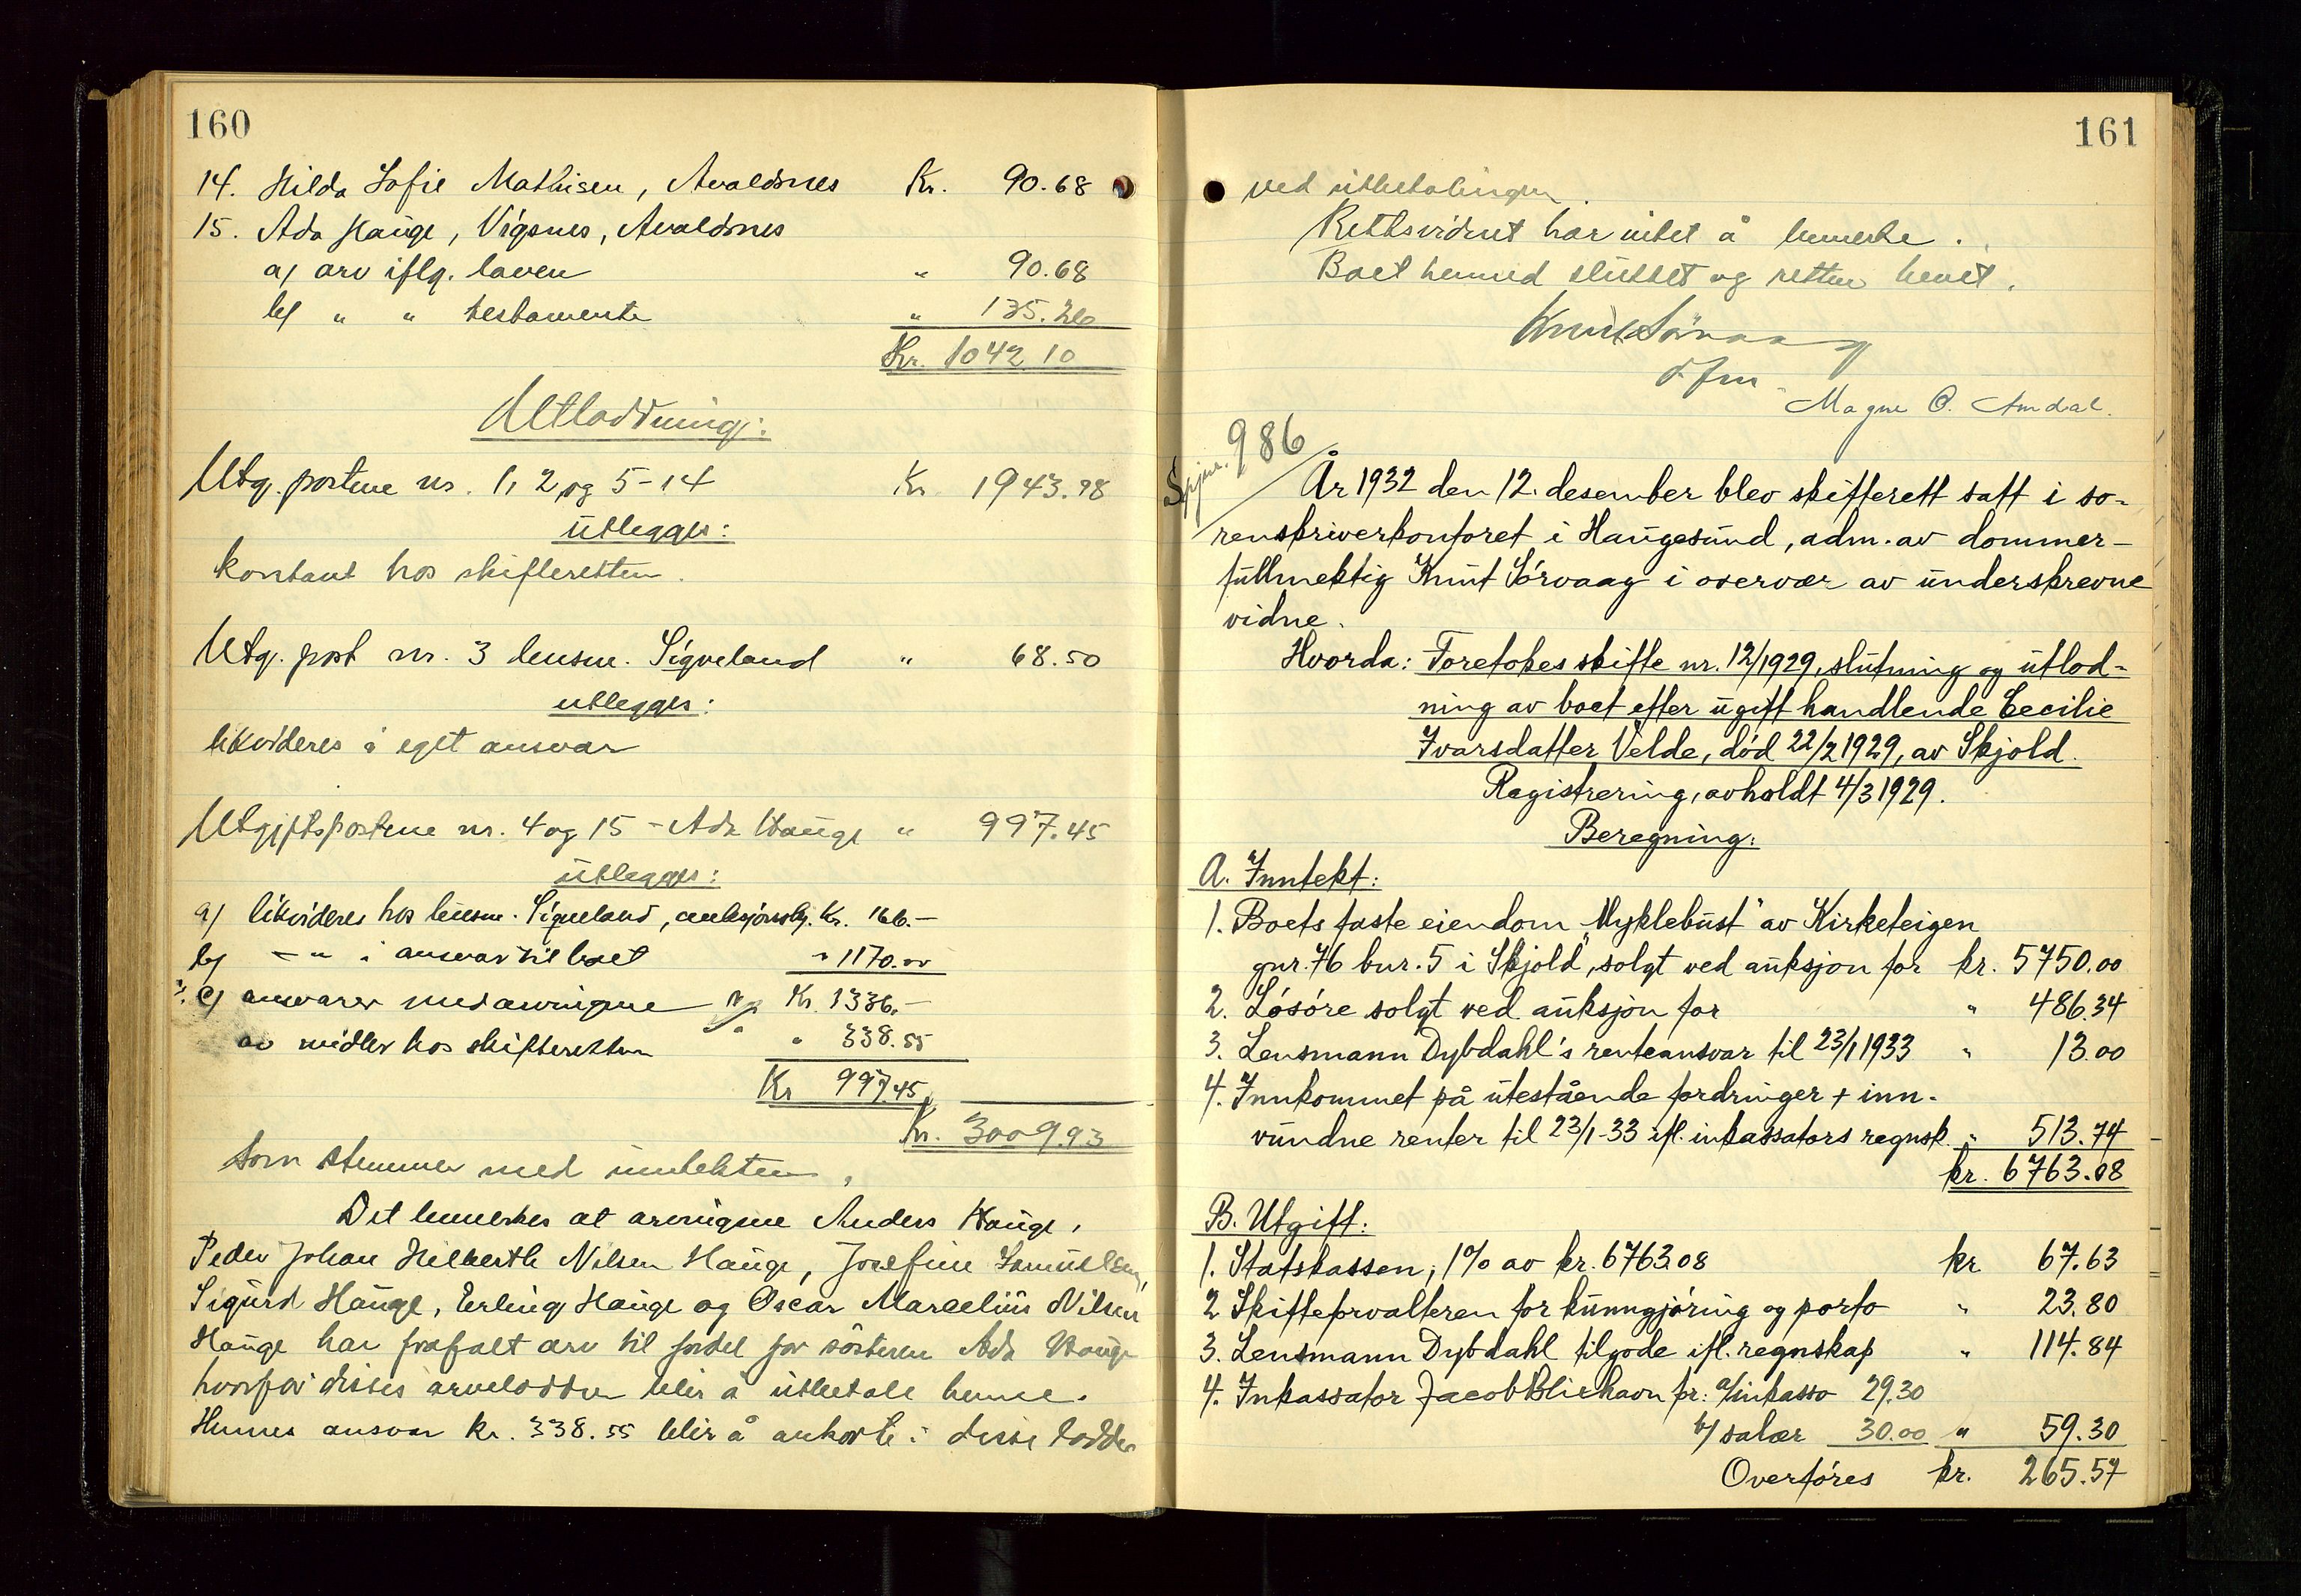 160
14. Hilda Sofie Mathisen, Avaldsnes Kr. 90.68
15. Ada Hauge, Vigsnes, Avaldsnes
a) arv iflg. loven " 90.68
b) " " testamente " 135.26
Kr. 1042.10
Utloddning:
Utg. postene nr. 1, 2 og 5-14 Kr 1943.98
utlegges:
kontant hos skifteretten.
Utg. post nr. 3 lensm. Sigveland " 68.50
utlegges:
likvideres i eget ansvar
Utgiftspostene nr. 4 og 15 - Ada Hauge " 997.45
utlegges:
a) likvideres hos lensm. Sigveland, Kr. 166.-
b) - " i ansvar til boet " 1170.00
c) ansvarer medarvingene Kr. 1336.-
av midler hos skifteretten " 338.55
Kr 997.45
Kr. 3009.93
som stemmer med inntekten.
Det bemerkes at arvingene Anders Hauge,
Peder Johan Hilberth Nilsen Hauge, Josefine Samuelsen,
Sigurd Hauge, Erling Hauge og Oscar Marcelius Nilsen
Hauge har frafalt arv til fordel for søsteren Ada Hauge
hvorfor disses arvelodder blir å utbetale henne.
Hennes ansvar kr. 338.55 blir å avkorte i disse lodder
161
ved utbetalingen.
Rettsvidnet har intet å bemerke.
Boet hermed sluttet og retten hevet.
Knut Sörvaag
d.fm.
Magne O. Amdal.
986
År 1932 den 12. desember blev skifterett satt i so-
renskriverkontoret i Haugesund, adm. av dommer-
fullmektig Knut Sörvaag i overvær av underskrevne
vidne.
Hvorda: Foretokes skifte nr. 12/1929, slutning og utlod-
ning av boet efter ugift handlende Cecilie
Ivarsdatter Velde, död 22/2 1929, av Skjold.
Registrering, avholdt 4/3 1929.
Beregning:
A. Inntekt:
1. Boets faste eiendom "Myklebust" av Kirketeigen
gnr. 76 bnr. 5 i Skjold, solgt ved auksjon for kr. 5750.00
2. Lösöre solgt ved auksjon for " 486.34
3. Lensmann Dybdahl's renteansvar til 23/1 1933 " 13.00
4. Innkommet på utestående fordringer + inn-
vundne renter til 23/1-33 ifl. inkassators regnsk. " 513.74
kr. 6763.08
B. Utgift:
1. Statskassen, 1% av kr. 6763.08 kr 67.63
2. Skifteforvalteren for kunngjöring og porto " 23.80
3. Lensmann Dybdahl tilgode ifl. regnskap " 114.84
4. Inkassator Jacob Bliehavn for: a/ inkasso 29.30
b/ salær 30.00 " 59.30
Overföres kr. 265.57